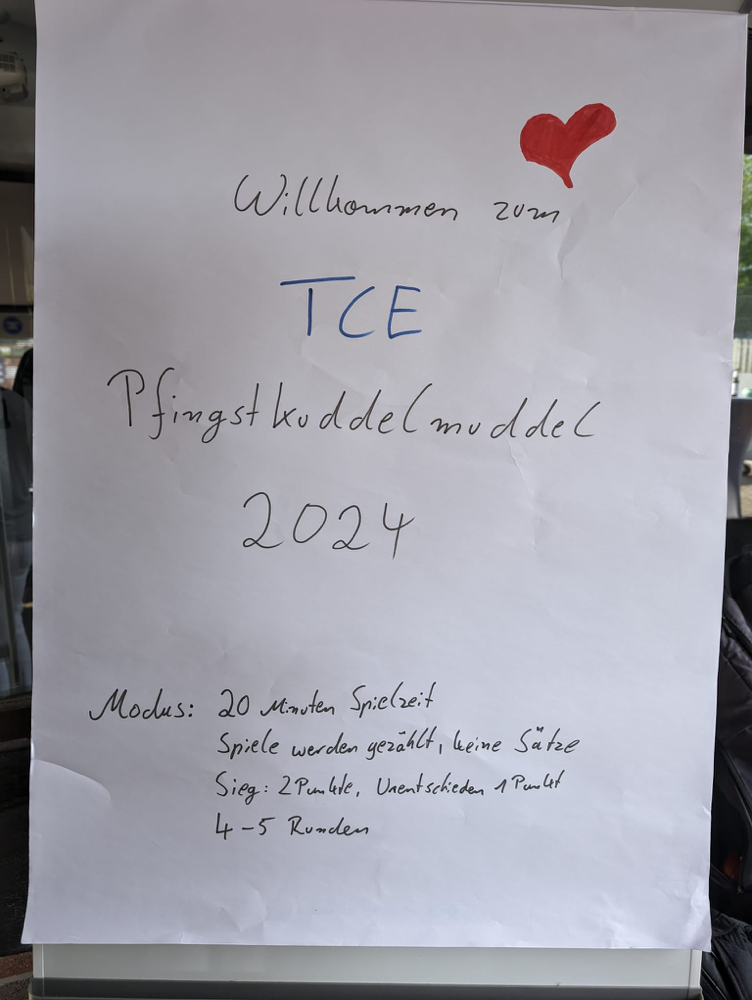 Willkommen zum
TCE
Pfingstkuddelmuddel
2024
Modus: 20 Minuten Spielzeit
Spiele werden gezählt, keine Sätze
Sieg: 2 Punkte, Unentschieden 1 Punkt
4-5 Runden